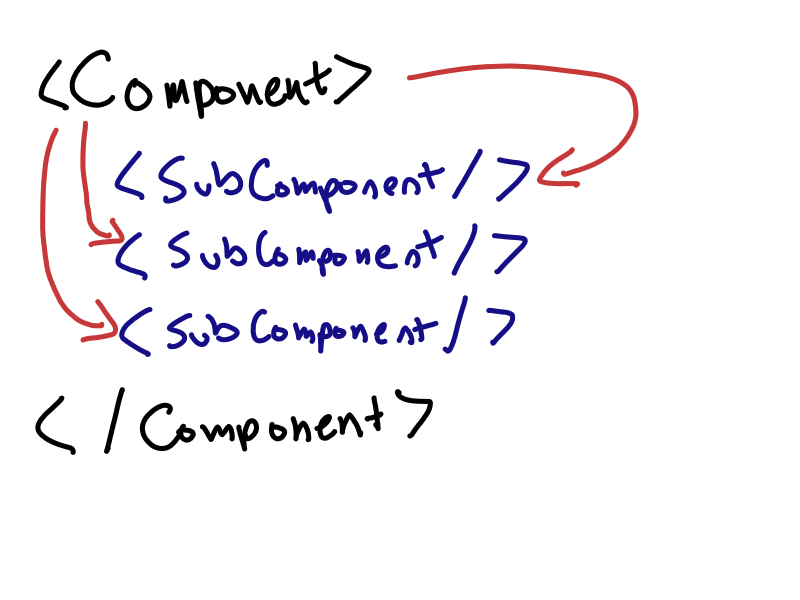 <Component>
<SubComponent/>
<SubComponent/>
<SubComponent/>
</Component>